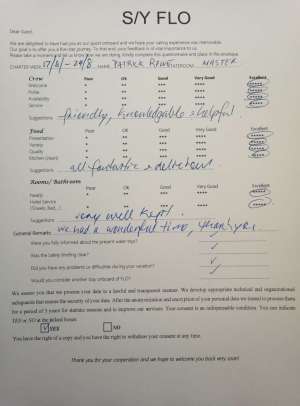 S/Y FLO
Dear Guest,
We are delighted to have had you as our guest onboard and we hope your sailing experience was memorable.
Our goal is to offer you a first rate journey. To that end your feedback is of vital importance to us.
Please take a moment and let us know how we are doing, kindly complete this questionnaire and place in the envelope.
CHARTER WEEK NAME PATRICK STATEROOM MASTER
Crew Poor OK Good Very Good Excellent
Welcome * ** *** **** *****
Polite * ** *** **** *****
Availability * ** *** **** *****
Service * ** *** **** *****
Suggestions friendly, knowledgable & helpful.
Food Poor OK Good Very Good Excellent
Presentation * ** *** **** *****
Variety * ** *** **** *****
Quality * ** *** **** *****
Kitchen (clean) * ** *** **** *****
Suggestions all fantastic &
Rooms/ Bathroom
Poor OK Good Very Good Excellent
Neatly * ** *** **** *****
Hotel Service * ** *** **** *****
(Towels, Bed,..)
Suggestions very well kept.
General Remarks we had a wonderful time, thank you
Were you fully informed about the present water toys? ✓
Was the Safety briefing clear? ✓
Did you have any problems or difficulties during your vacation? ✓
Would you consider another stay onboard of FLO? ✓
We assure you that we process your data in a lawful and transparent manner. We develop appropriate technical and organizational
safeguards that ensure the security of your data. After the anonymization and encryption of your personal data we intend to process them
for a period of 3 years for statistic reasons and to improve our services. Your consent is an indispensable condition. You can indicate
YES or NO at the below boxes:
✓ YES NO
You have the right of a copy and you have the right to withdraw your consent at any time.
Thank you for your cooperation and we hope to welcome you back very soon!